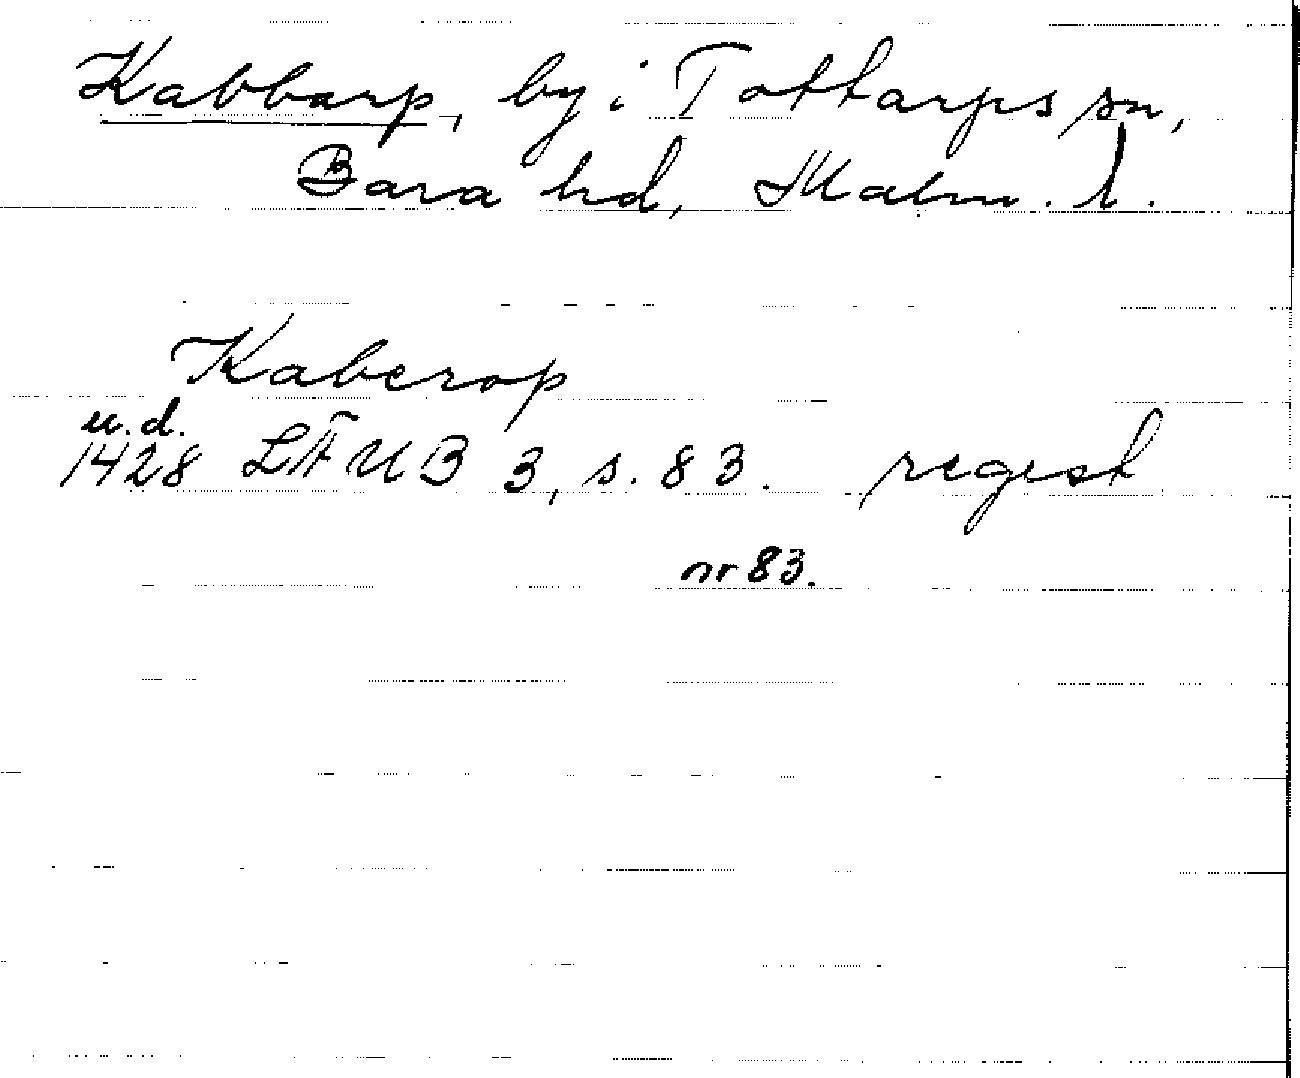 Kabbarp, by i Tottarps sn,
Bara hd, Malm. l.
Kaberop
u.d.
1428 LÄUB 3, s. 83. regest
nr 83.